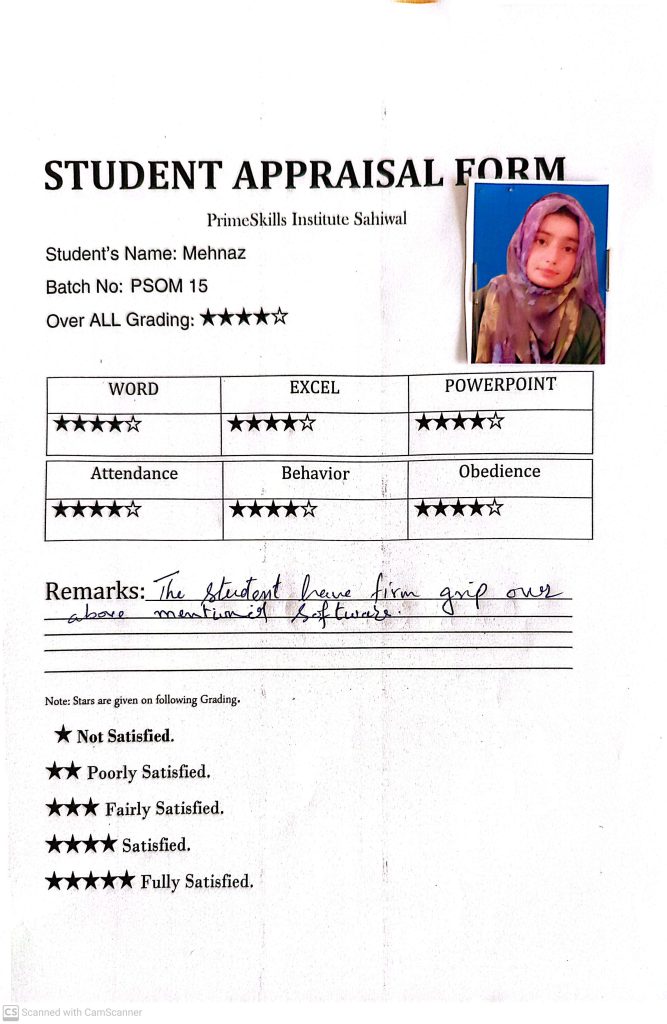 STUDENT APPRAISAL FORM
PrimeSkills Institute Sahiwal
Student's Name: Mehnaz
Batch No: PSOM 15
Over ALL Grading: ★★★★☆
WORD EXCEL POWERPOINT
★★★★☆ ★★★★☆ ★★★★☆
Attendance Behavior Obedience
★★★★☆ ★★★★☆ ★★★★☆
Remarks: The student have firm grip over
above mentioned software.
Note: Stars are given on following Grading.
★ Not Satisfied.
★★ Poorly Satisfied.
★★★ Fairly Satisfied.
★★★★ Satisfied.
★★★★★ Fully Satisfied.
CS Scanned with CamScanner